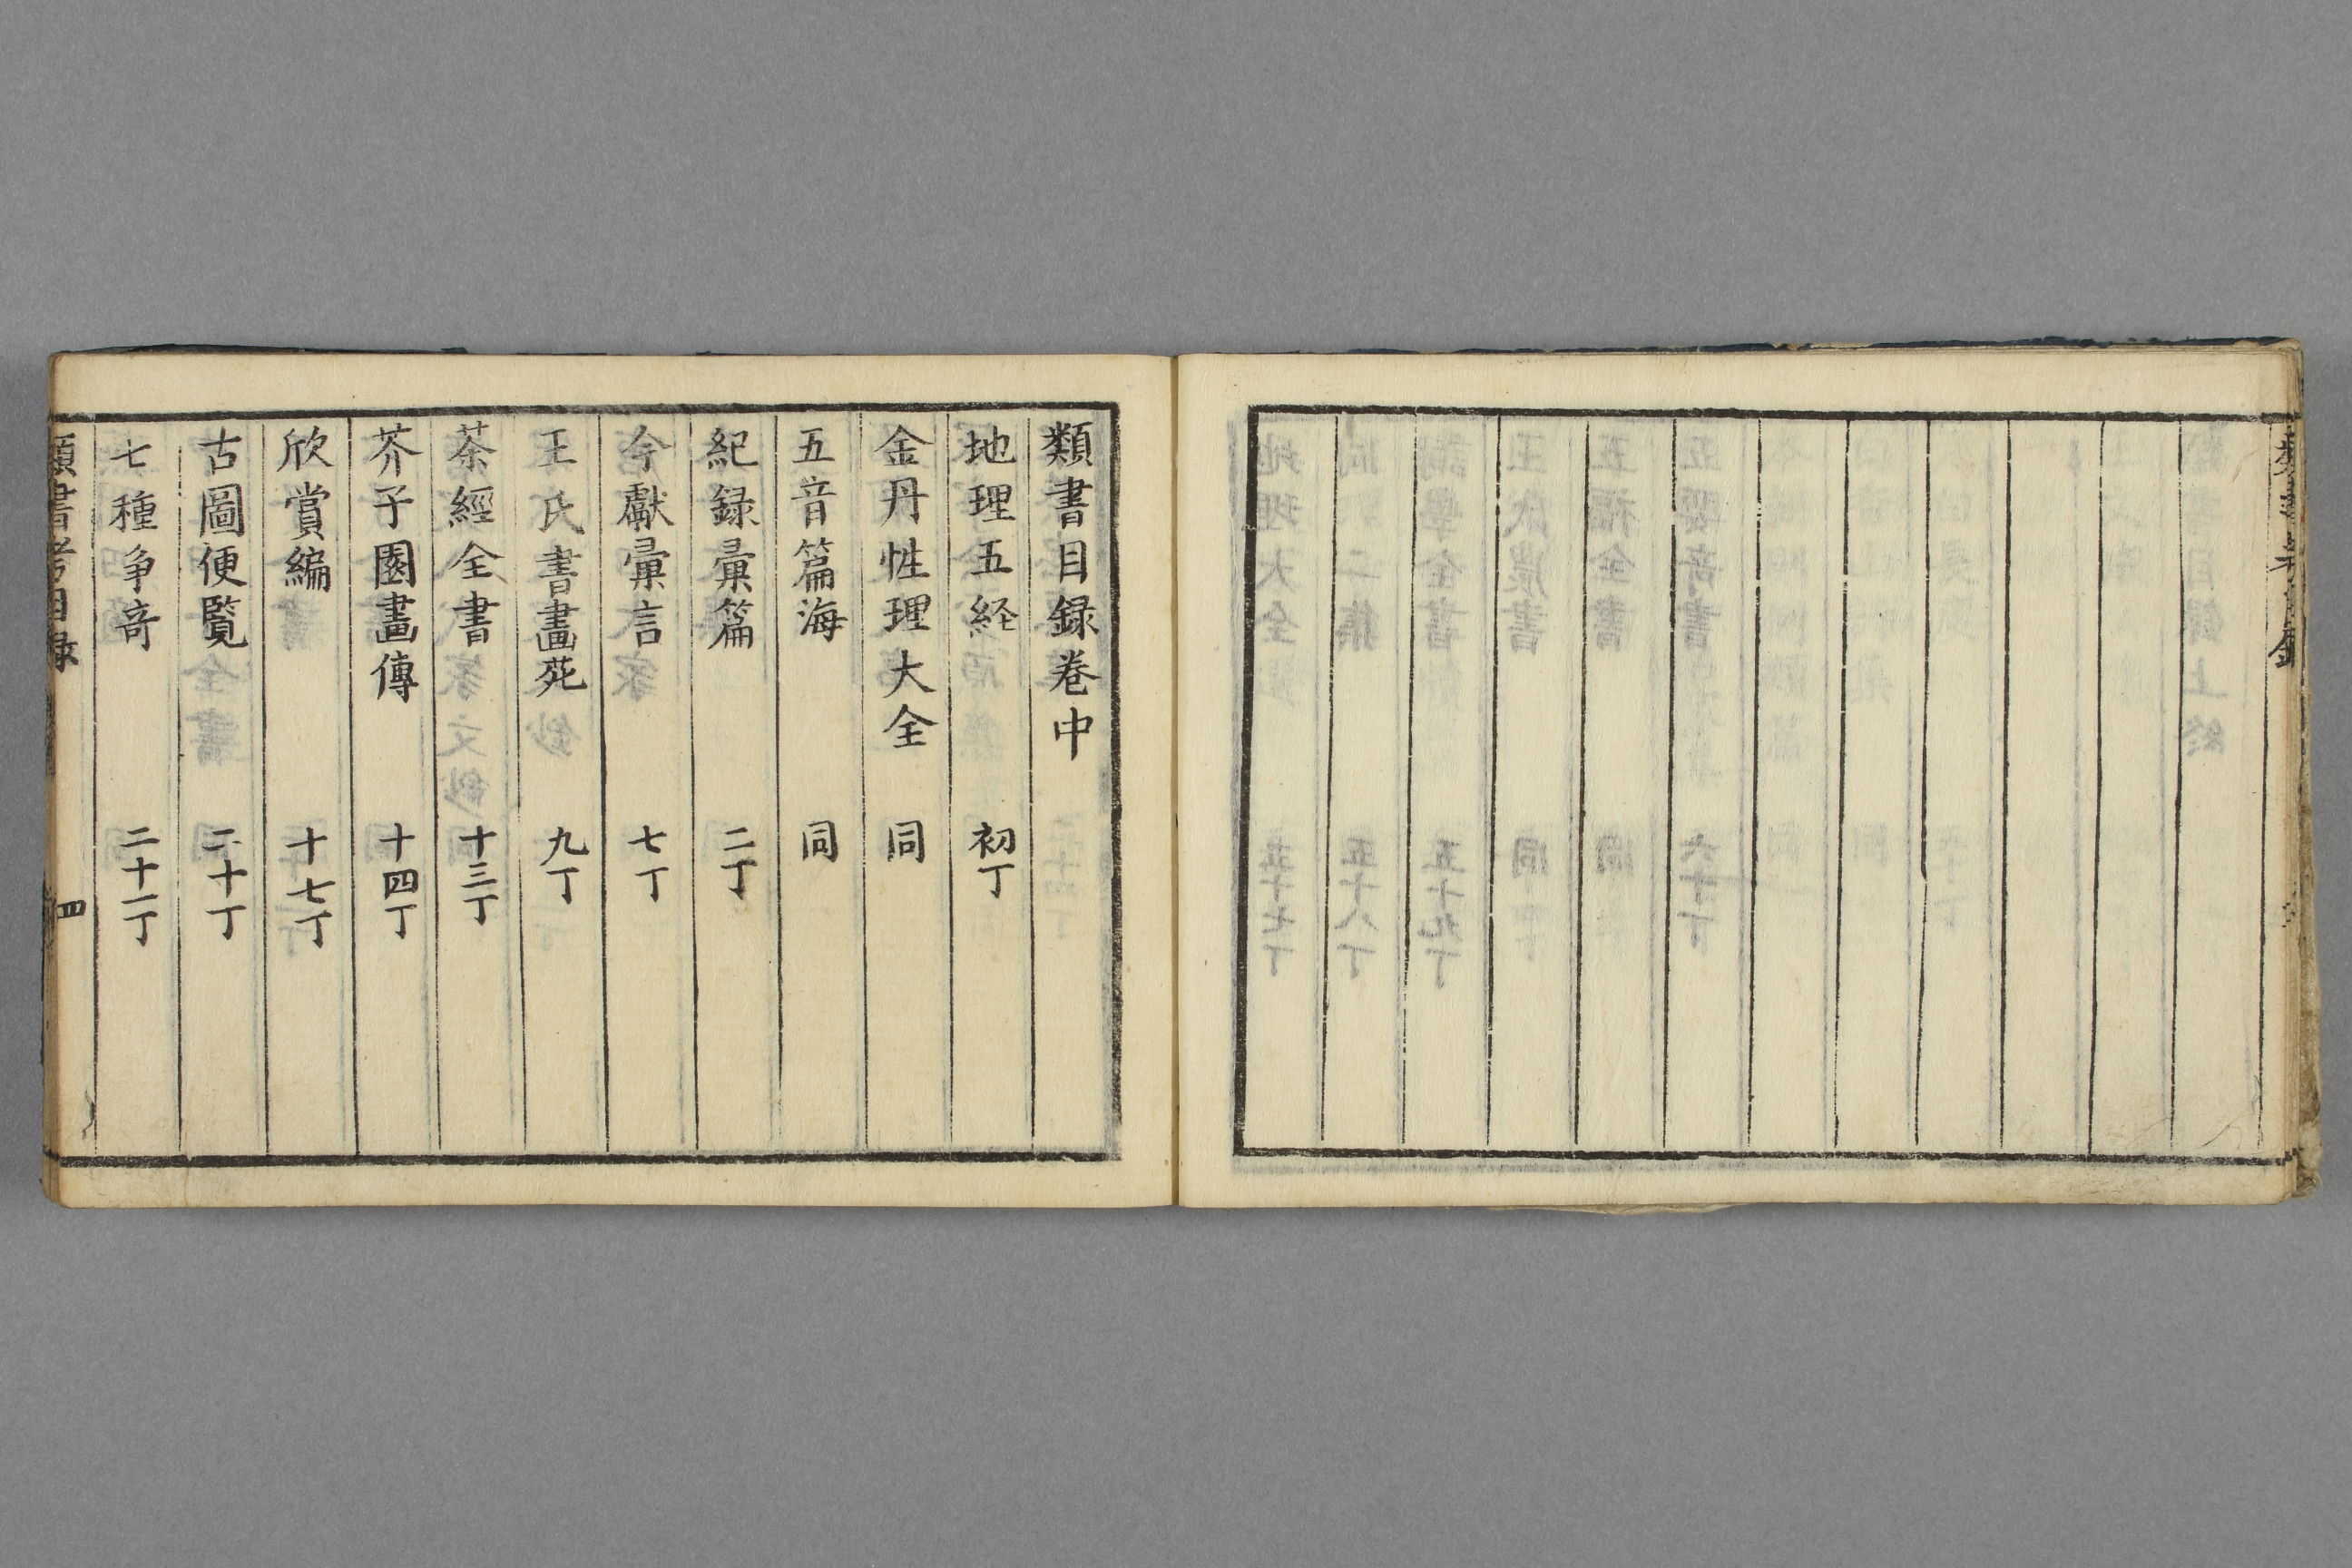 類書目録卷中
地理五経 初丁
金丹性理大全 同
五音篇海 同
紀録彙篇 二丁
今獻彙言 七丁
王氏書畫苑 九丁
茶經全書 十三丁
芥子園畫傳 十四丁
欣賞編 十七丁
古圖便覧 二十丁
七種争竒 二十一丁
類書考目録 四